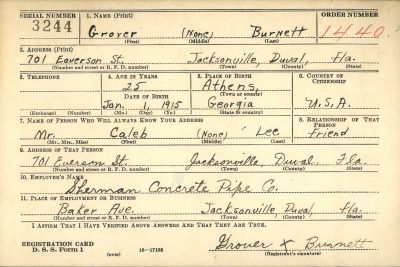 SERIAL NUMBER 1. NAME (Print) ORDER NUMBER
3244 Grover (None) Burnett 1440
(First) (Middle) (Last)
2. ADDRESS (Print)
701 Eaverson St. Jacksonville, Duval, Fla.
(Number and street or R. F. D. number) (Town) (County) (State)
3. TELEPHONE 4. AGE IN YEARS 5. PLACE OF BIRTH 6. COUNTRY OF CITIZENSHIP
25 Athens,
DATE OF BIRTH (Town or county)
Jan. 1, 1915 Georgia U.S.A.
(Exchange) (Number) (Mo.) (Day) (Yr.) (State or country)
7. NAME OF PERSON WHO WILL ALWAYS KNOW YOUR ADDRESS 8. RELATIONSHIP OF THAT PERSON
Mr. Caleb (None) Lee friend
(Mr., Mrs., Miss) (First) (Middle) (Last)
9. ADDRESS OF THAT PERSON
701 Everson St. Jacksonville Duval Fla.
(Number and street or R. F. D. number) (Town) (County) (State)
10. EMPLOYER'S NAME
Sherman Concrete Pipe Co.
11. PLACE OF EMPLOYMENT OR BUSINESS
Baker Ave. Jacksonville, Duval, Fla.
(Number and street or R. F. D. number) (Town) (County) (State)
I AFFIRM THAT I HAVE VERIFIED ABOVE ANSWERS AND THAT THEY ARE TRUE.
REGISTRATION CARD
D. S. S. Form 1 (over) 16—17105 Grover X Burnett
(Registrant's signature)